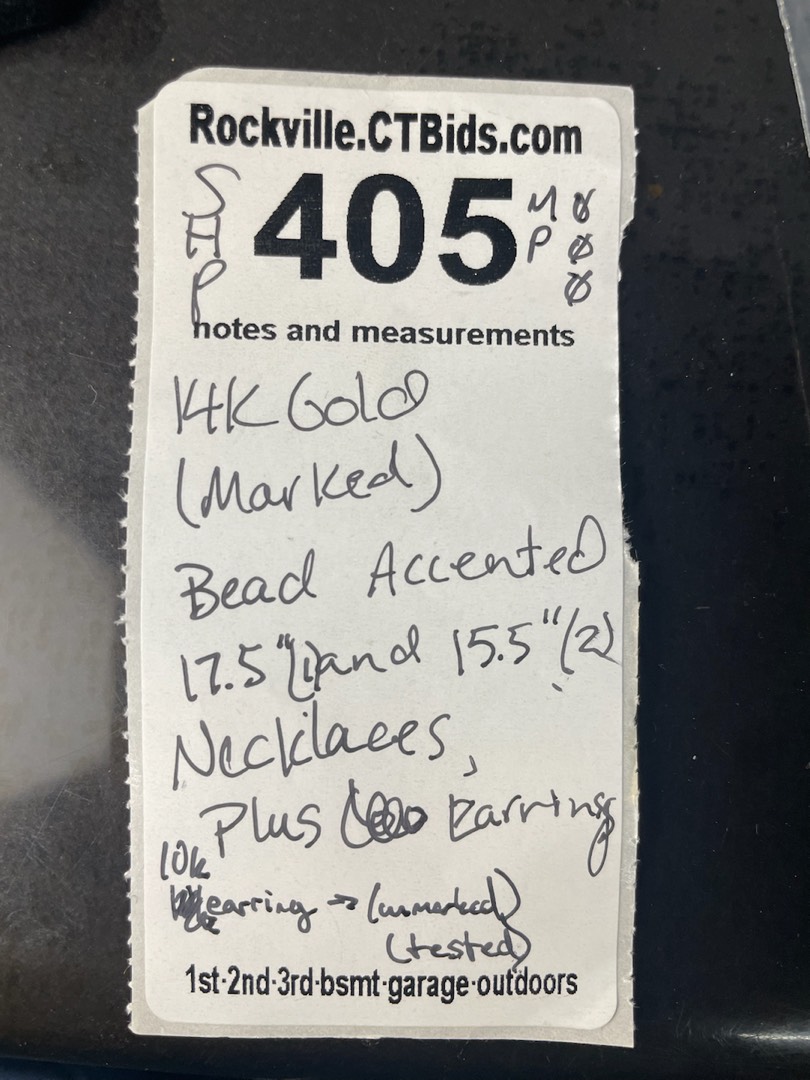 Rockville.CTBids.com
SIP 405 MP
notes and measurements
14K Gold
(Marked)
Bead Accented
17.5"(1)and 15.5"(2)
Necklaces,
Plus Earrings
10k
earring → (unmarked)
(tested)
1st·2nd·3rd·bsmt·garage·outdoors